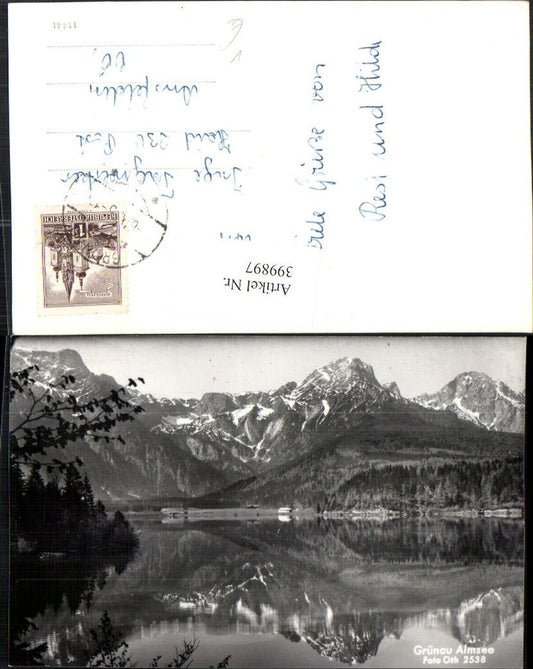 11:141
viele Grüße von
Resi und Hilde
Inge
Haid 230 Post
Ansfelden
OÖ,
REPUBLIK ÖSTERREICH
Artikel Nr.
399897
Grünau Almsee
Foto Oth 2538